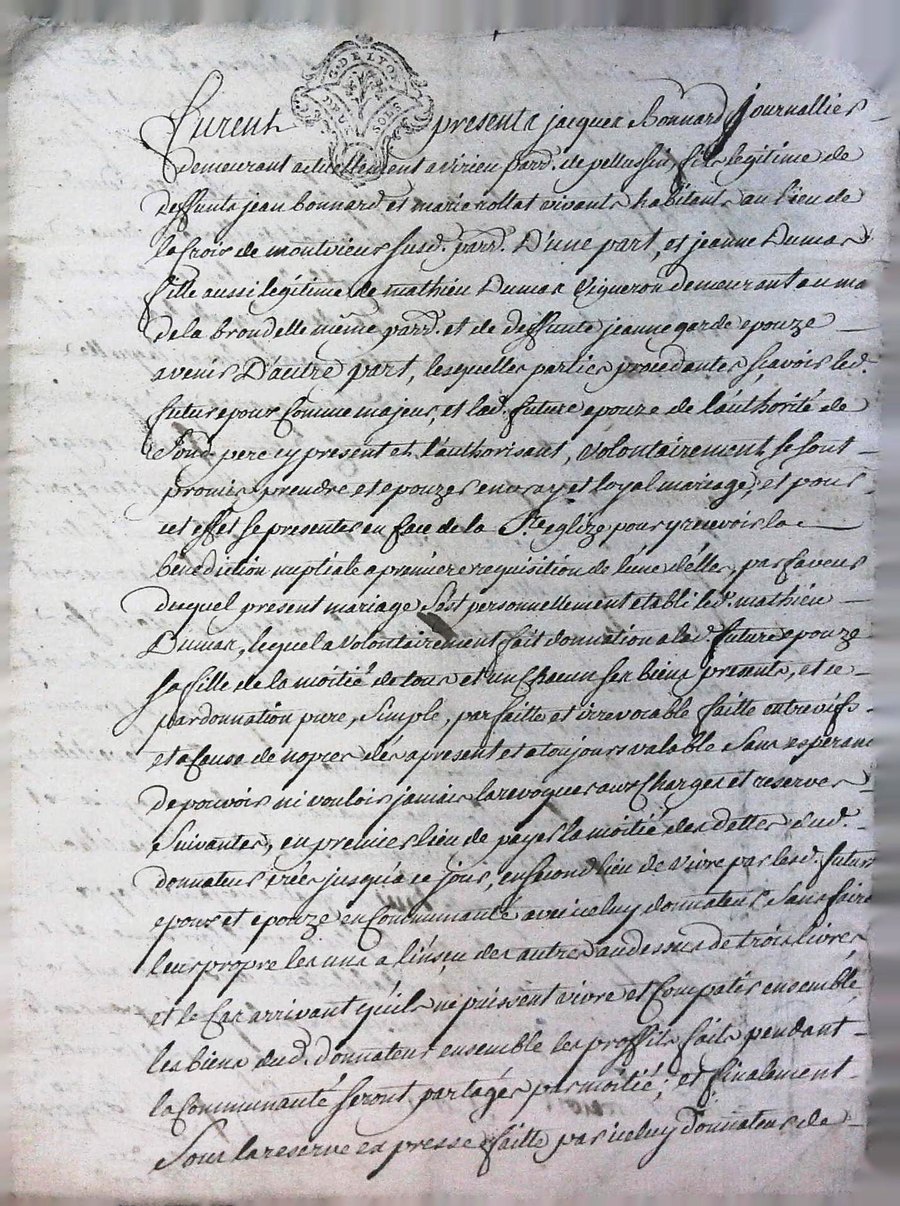 G. DE LYON
DEUX SOLS
furent presents jacques Bonnard journallier
demeurant actuellement a virieu parr. de pellussin, fils legitime de
deffunts jean bonnard et marie rollat vivants habitants au lieu de
la croix de montvieux susd. parr. D'une part, et jeanne Dumas
fille aussi légitime de mathieu Dumas Vigneron demeurant au ma
de la brondelle même parr. et de deffunte jeanne garde epouze
avenir D'autre part, lesquelles parties procedantes sçavoir led.
futur epoux comme majeur, et lad. future epouze de l'authorité de
Sond. pere cy present et l'authorisant, volontairement se sont
promis prendre et epouzer en vray et loyal mariage, et pour
cet effet se presenter en face de la Ste. eglize pour y recevoir la
bénédiction nuptiale a premiere requisition de l'une d'elles, par faveur
duquel present mariage S'est personnellement etabli led. mathieu
Dumas, lequel a volontairement fait donnation a lad. future epouze
sa fille de la moitié de tous et un chacun ses biens presents, et ce
par donnation pure, simple, parfaitte et irrevocable faitte entre vifs
et a cause de nopces dés apresent et a toujours valable sans esperanc
de pouvoir ni vouloir jamais la revoquer aux charges et reserves
Suivantes, en premier lieu de payer la moitié des dettes dud.
donnateur créés jusqu'a ce jour, en second lieu de vivre par lesd. futurs
epoux et epouze en communauté avec iceluy donnateur sans faire
leur propre les uns a l'insçu des autres audessus de trois livres
et le cas arrivant qu'ils ne puissent vivre et compatir ensemble
les biens dud. donnateur ensemble les proffits faits pendant
la communauté seront partagés par moitié; et finalement
Sous la reserve expresse faitte par iceluy donnateur de